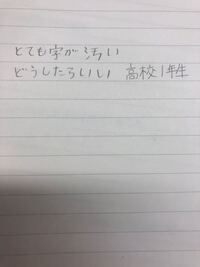 とても字が汚い
どうしたらいい 高校1年生